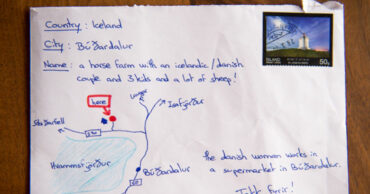 Country : Iceland
City : Búðardalur
Name : a horse farm with an icelandic/danish
couple and 3 kids and a lot of sheep!
ÍSLAND
50g
here
Ísafjörður
590
Hvammsfjörður
Búðardalur
60
the danish woman works in
a supermarket in Búðardalur.
Takk fyrir!